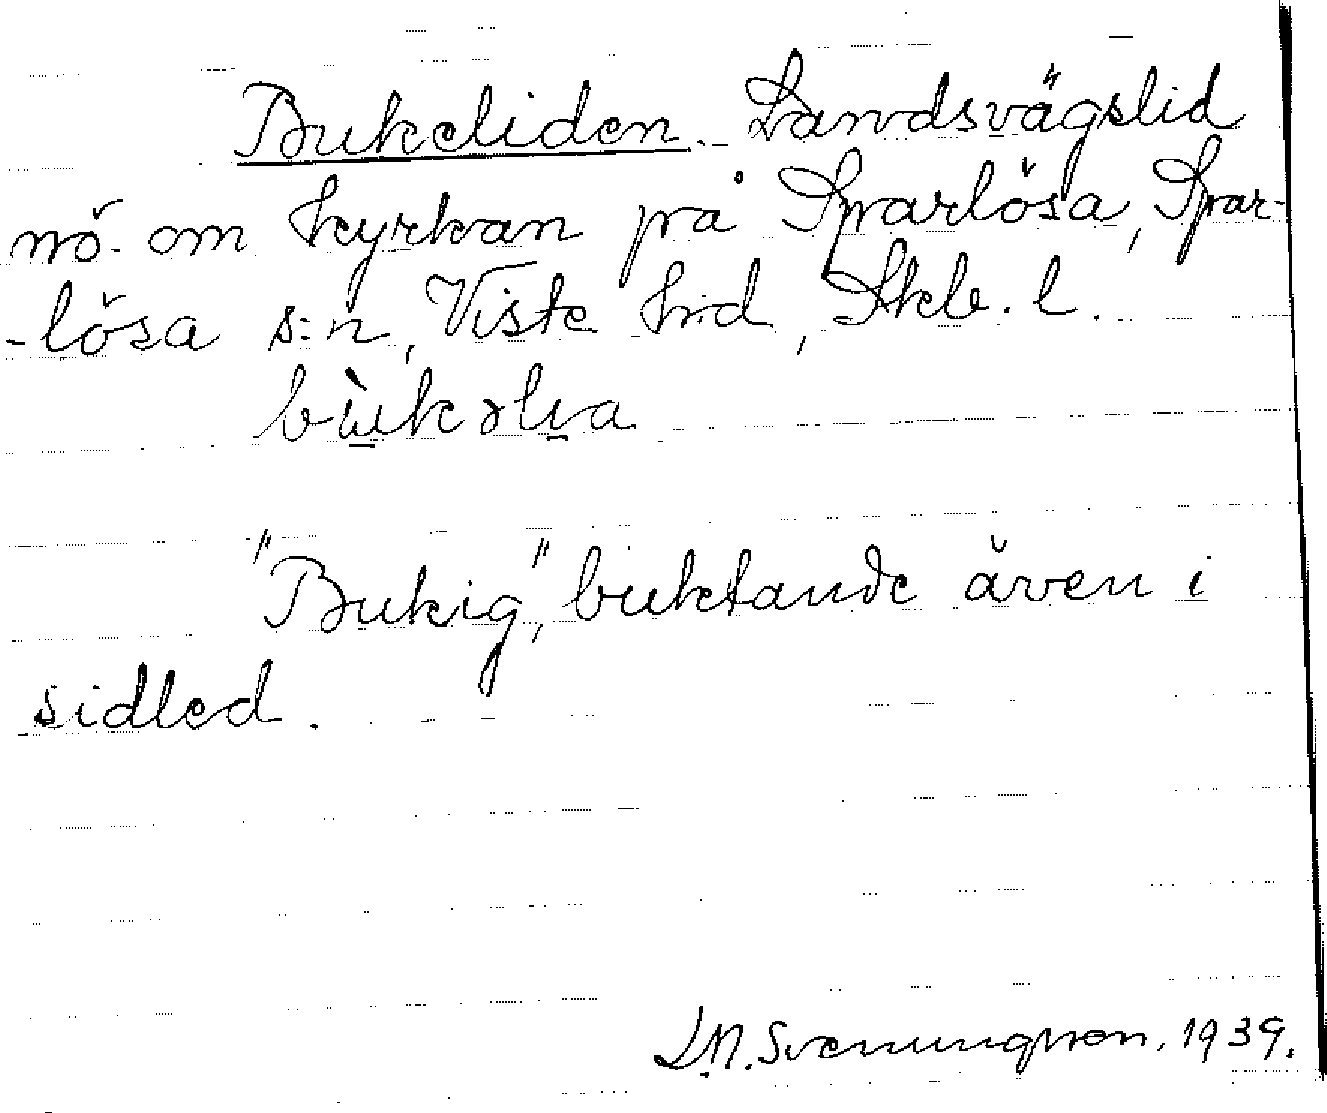 Bukeliden. Landsvägslid
nö. om kyrkan på Sparlösa, Spar-
-lösa s:n, Viste hd, Skb. l.
bùkəlıa
"Bukig", buktande även i
sidled.
L.N. Svenungsson. 1939.